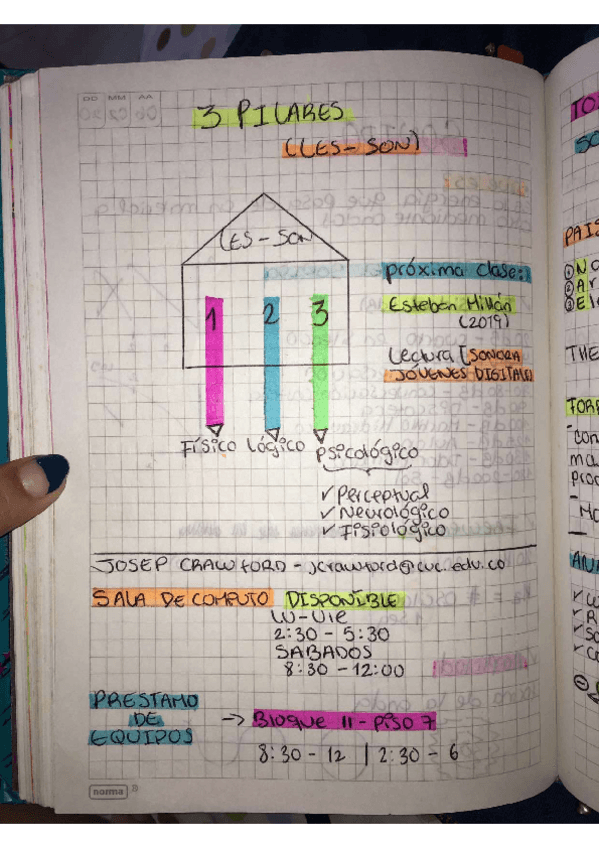 DD MM AA
3 PILARES
(LES-SON)
LES-SON
próxima clase:
Esteban Millán
(2019)
Lectura [SONORA
JÓVENES DIGITAL
1 2 3
Físico Lógico Psicológico
✓ Perceptual
✓ Neurológico
✓ Fisiológico
JOSEP CRAWFORD - jcrawford@cuc.edu.co
SALA DE COMPUTO DISPONIBLE
LU-Vie
2:30 - 5:30
SABADOS
8:30 - 12:00
PRESTAMO
DE
EQUIPOS
→ Bloque 11 - Piso 7
8:30 - 12 | 2:30 - 6
norma
PAIS
① N
② Ar
③ El
THE
con
ma